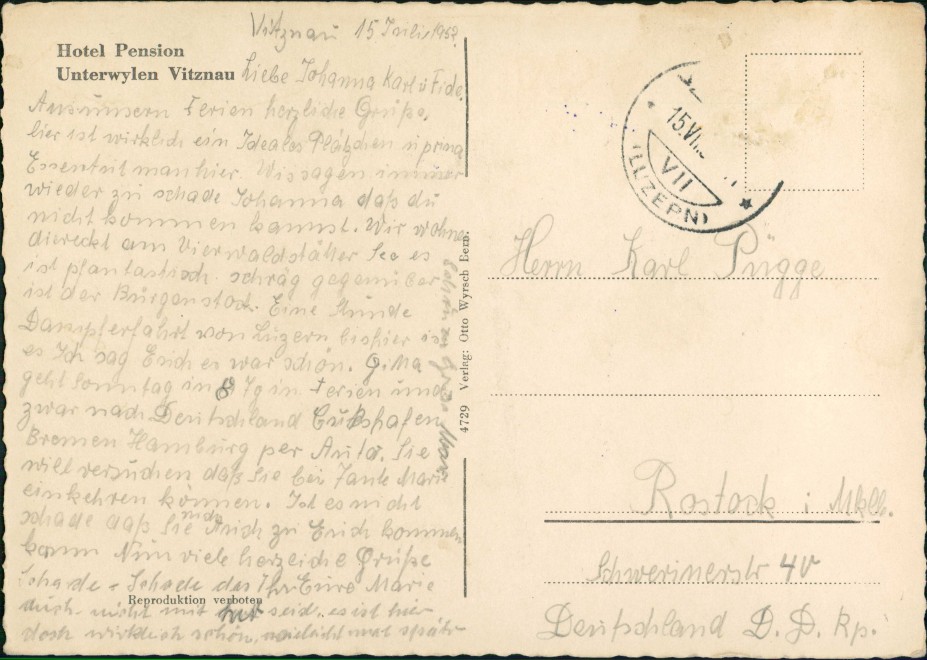 Vitznau 15 Juli 195
Hotel Pension
Unterwylen Vitznau
Liebe Johanna Karl u Fide.
Aus unsern Ferien herzliche Grüße,
hier ist wirklich ein Ideales Plätzchen u prima
Essen tut man hier. Wir sagen immer
wieder zu schade Johanna daß du
nicht kommen kannst. Wir wohnen
diereckt am Vierwaldstätter See es
ist phantastisch schräg gegenüber
ist der Bürgenstock. Eine Stunde
Dampferfahrt von Luzern bis hier ist
es Ich sag Euch es war schön.
geht Sonntag in 8 Tg in Ferien und
zwar nach Deutschland Cukshafen
Bremen Hamburg per Auto. Sie
will versuchen daß Sie bei Tante Marie
einkehren können. Ist es nicht
schade daß Sie nich zu Euch kommen
kann Nun viele herzliche Grüße
Schade - Schade das Ihr Eure Marie
Reproduktion verboten
nicht mit seid. es ist hier
doch wirklich schön, vieleicht mal später
4729 Verlag: Otto Wyrsch Bern.
15.VII.
VII
(LUZERN)
Herrn Karl Pügge
Rostock i Mklb.
Schwerinerstr 40
Deutschland D. D. Rp.